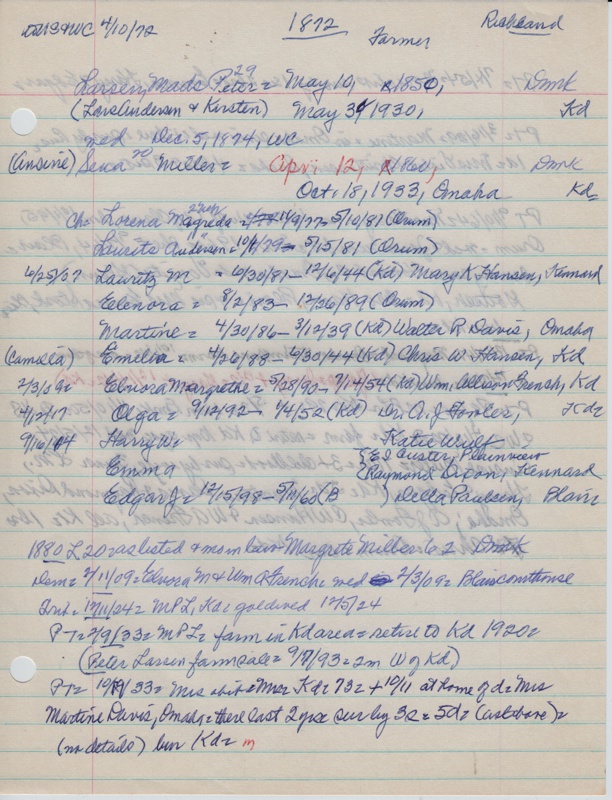 4/10/72 1872 Richland
Farmer
Larsen, Mads Peter 29 = May 10, 1850, Dmrk
(Lars Andersen & Kirsten) May 31 1930, Kd
med Dec. 5, 1874, WC
(Ansine) Sena 20 Miller = Apri 12, 1860, Dmrk
Oct. 18, 1933, Omaha Kd=
Ch = Lorena Magreda = 5/10/81 (Orum)
Laurits Andersen = 79 - 5/15/81 (Orum)
6/25/07 Lauritz M = 6/30/81 - 12/6/44 (Kd) Mary K Hansen, Kennard
Elenora = 8/2/83 - 12/26/89 (Orum)
Martine = 4/30/86 - 3/12/39 (Kd) Walter R Davis, Omaha
(Camella) Emelia = 4/26/88 - 4/30/44 (Kd) Chris W. Hansen, Kd
2/3/09 = Elvora Margrethe = 5/28/90 - 7/14/54 (Kd) Wm. Allison French, Kd
4/2/17 Olga = 9/12/92 - 1/4/52 (Kd) Dr. A. J. Fowler, Kd=
9/16/04 Harry W. Katie Wulf,
Emma {E J Custer, Plainview
{Raymond Dixon, Kennard
Edgar J = 12/15/98 - 5/11/60 (B) Della Paulsen, Blair
1880 L 20 = as listed & mom live Margrete Miller 62 Dmrk
Dem = 2/11/09 = Elvora M & Wm A French = wed 2/3/09 = Blair courthouse
12/11/24 = M P L, Kd = gold wed 12/5/24
PT = 2/9/33 = M P L = farm in Kd area = retire to Kd 1920 =
(Peter Larsen farm sale = 9/7/93 = 2 m W of Kd)
PT = 10/19/33 = Mrs Kd = 73 = + 10/11 at home of d = Mrs
Martine Davis, Omaha = there last 2 yrs = sur by 3s = 5d = (as above) =
(no details) bur Kd = m